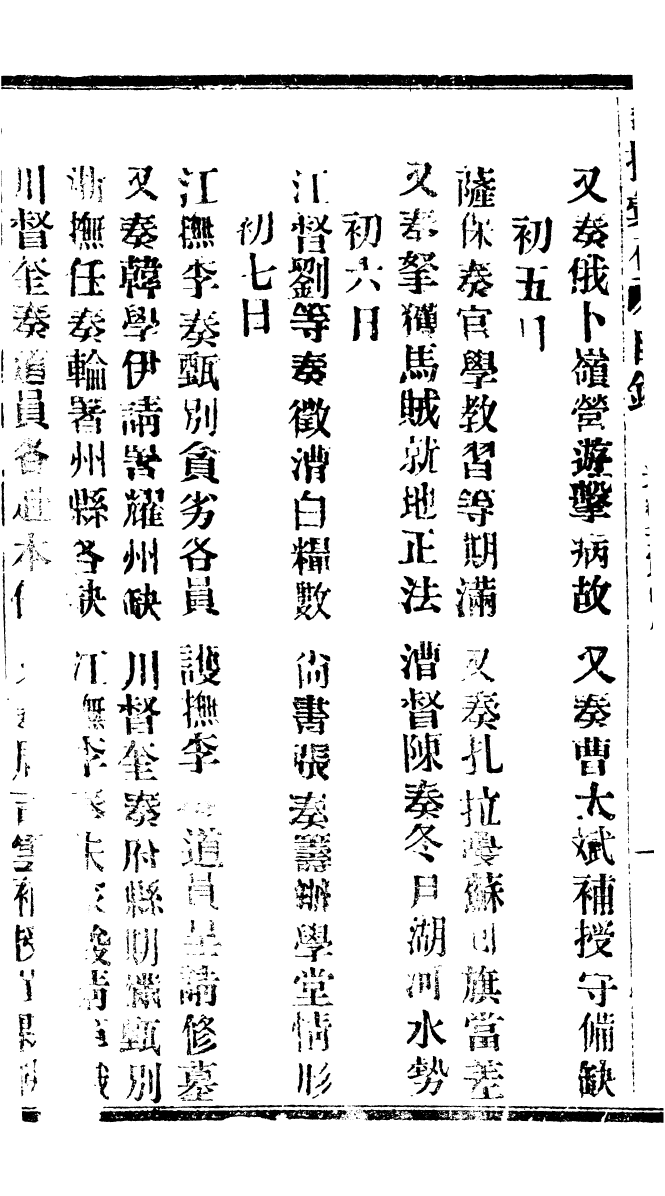 又奏俄卜嶺營遊擊病故 又奏曹大斌補授守備缺
初五日
薩保奏官學教習等期滿 又奏扎拉 蘇 旗當差
又奏拏獲馬賊就地正法 漕督陳奏冬月湖河水勢
初六日
江督劉等奏徵漕白糧數 尚書張奏籌辦學堂情形
初七日
江撫李奏甄別貪劣各員 護撫李 道員 請修墓
又奏韓學伊請署耀州缺 川督奎奏府縣期滿甄別
浙撫任奏輪署州縣各缺 江撫李奏朱 請
川督奎奏道員各 本 補授